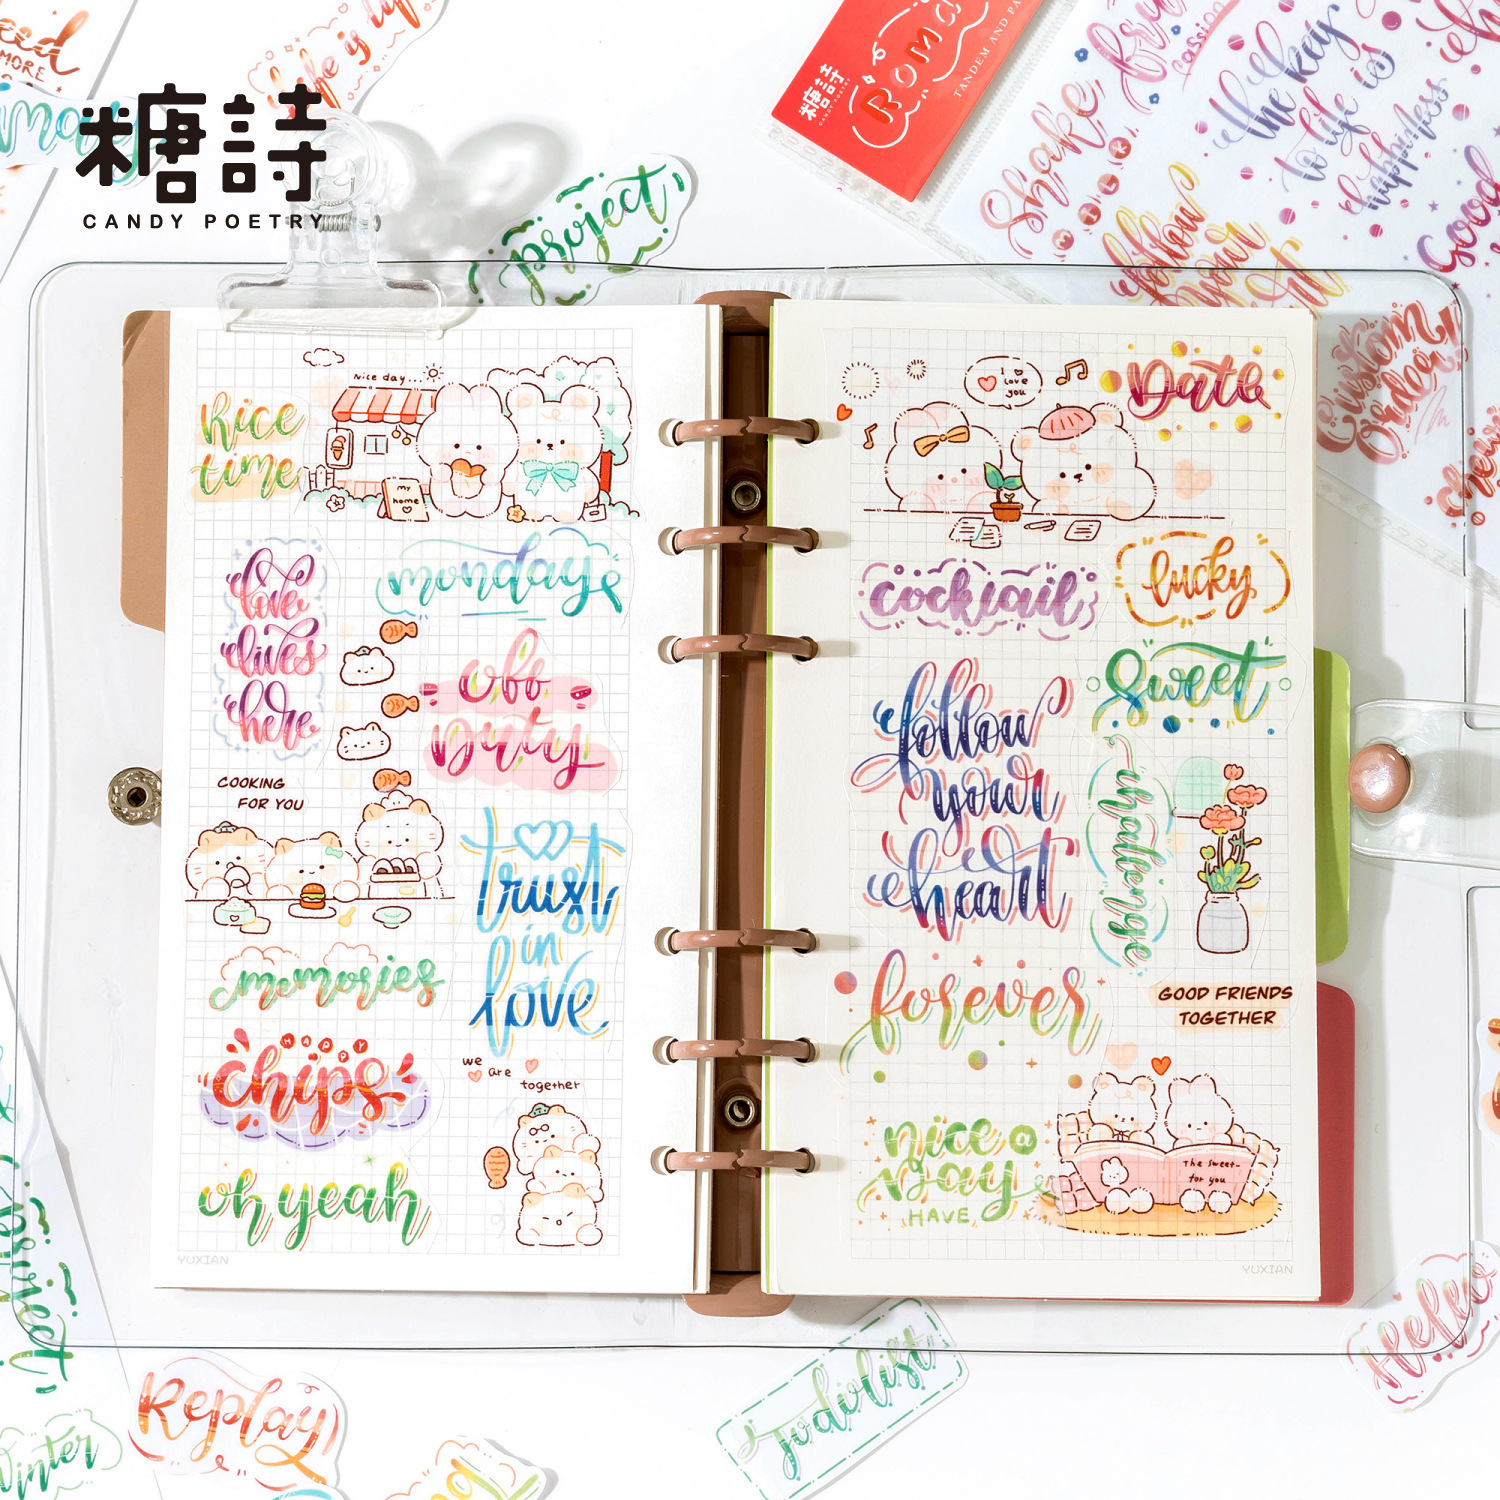 糖詩
CANDY POETRY
MORE
life is
project
糖詩
CANDY POETRY
Roma
TANDEM AND PA
Shake
passion
the key
to life is
happiness
follow
your
Good
Custom
order
Rice
time
Nice day...
my
home
love
lives
here
monday
off
Duty
COOKING
FOR YOU
trust
in
love
memories
HAPPY
chips
oh yeah
we
are
together
YUXIAN
I
love
you
Date
cocktail
lucky
sweet
follow
your
heart
challenge
forever
GOOD FRIENDS
TOGETHER
nice a
Day
HAVE
The sweet-
for you
YUXIAN
Replay
Winter
to do list
Hello